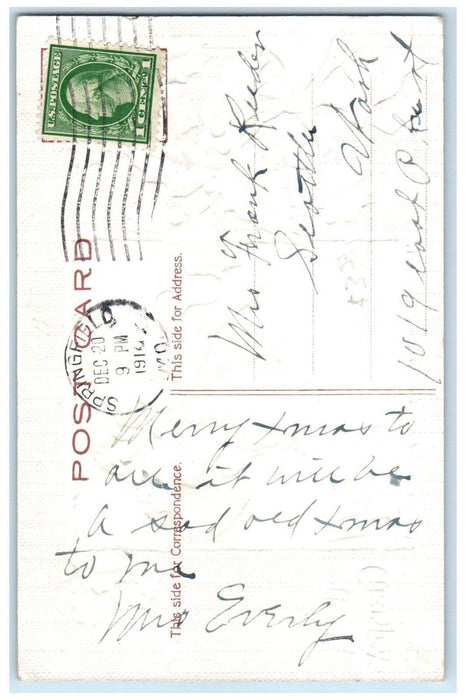 U.S. POSTAGE
1 CENT 1
SPRINGFIELD
MO.
DEC 20
9 PM
POST CARD
This side for Address.
This side for Correspondence.
Mrs Frank Reeder
Seattle
Wash
1019 east P
Merry Xmas to
all it will be
a sad old Xmas
to me
Mrs Everly